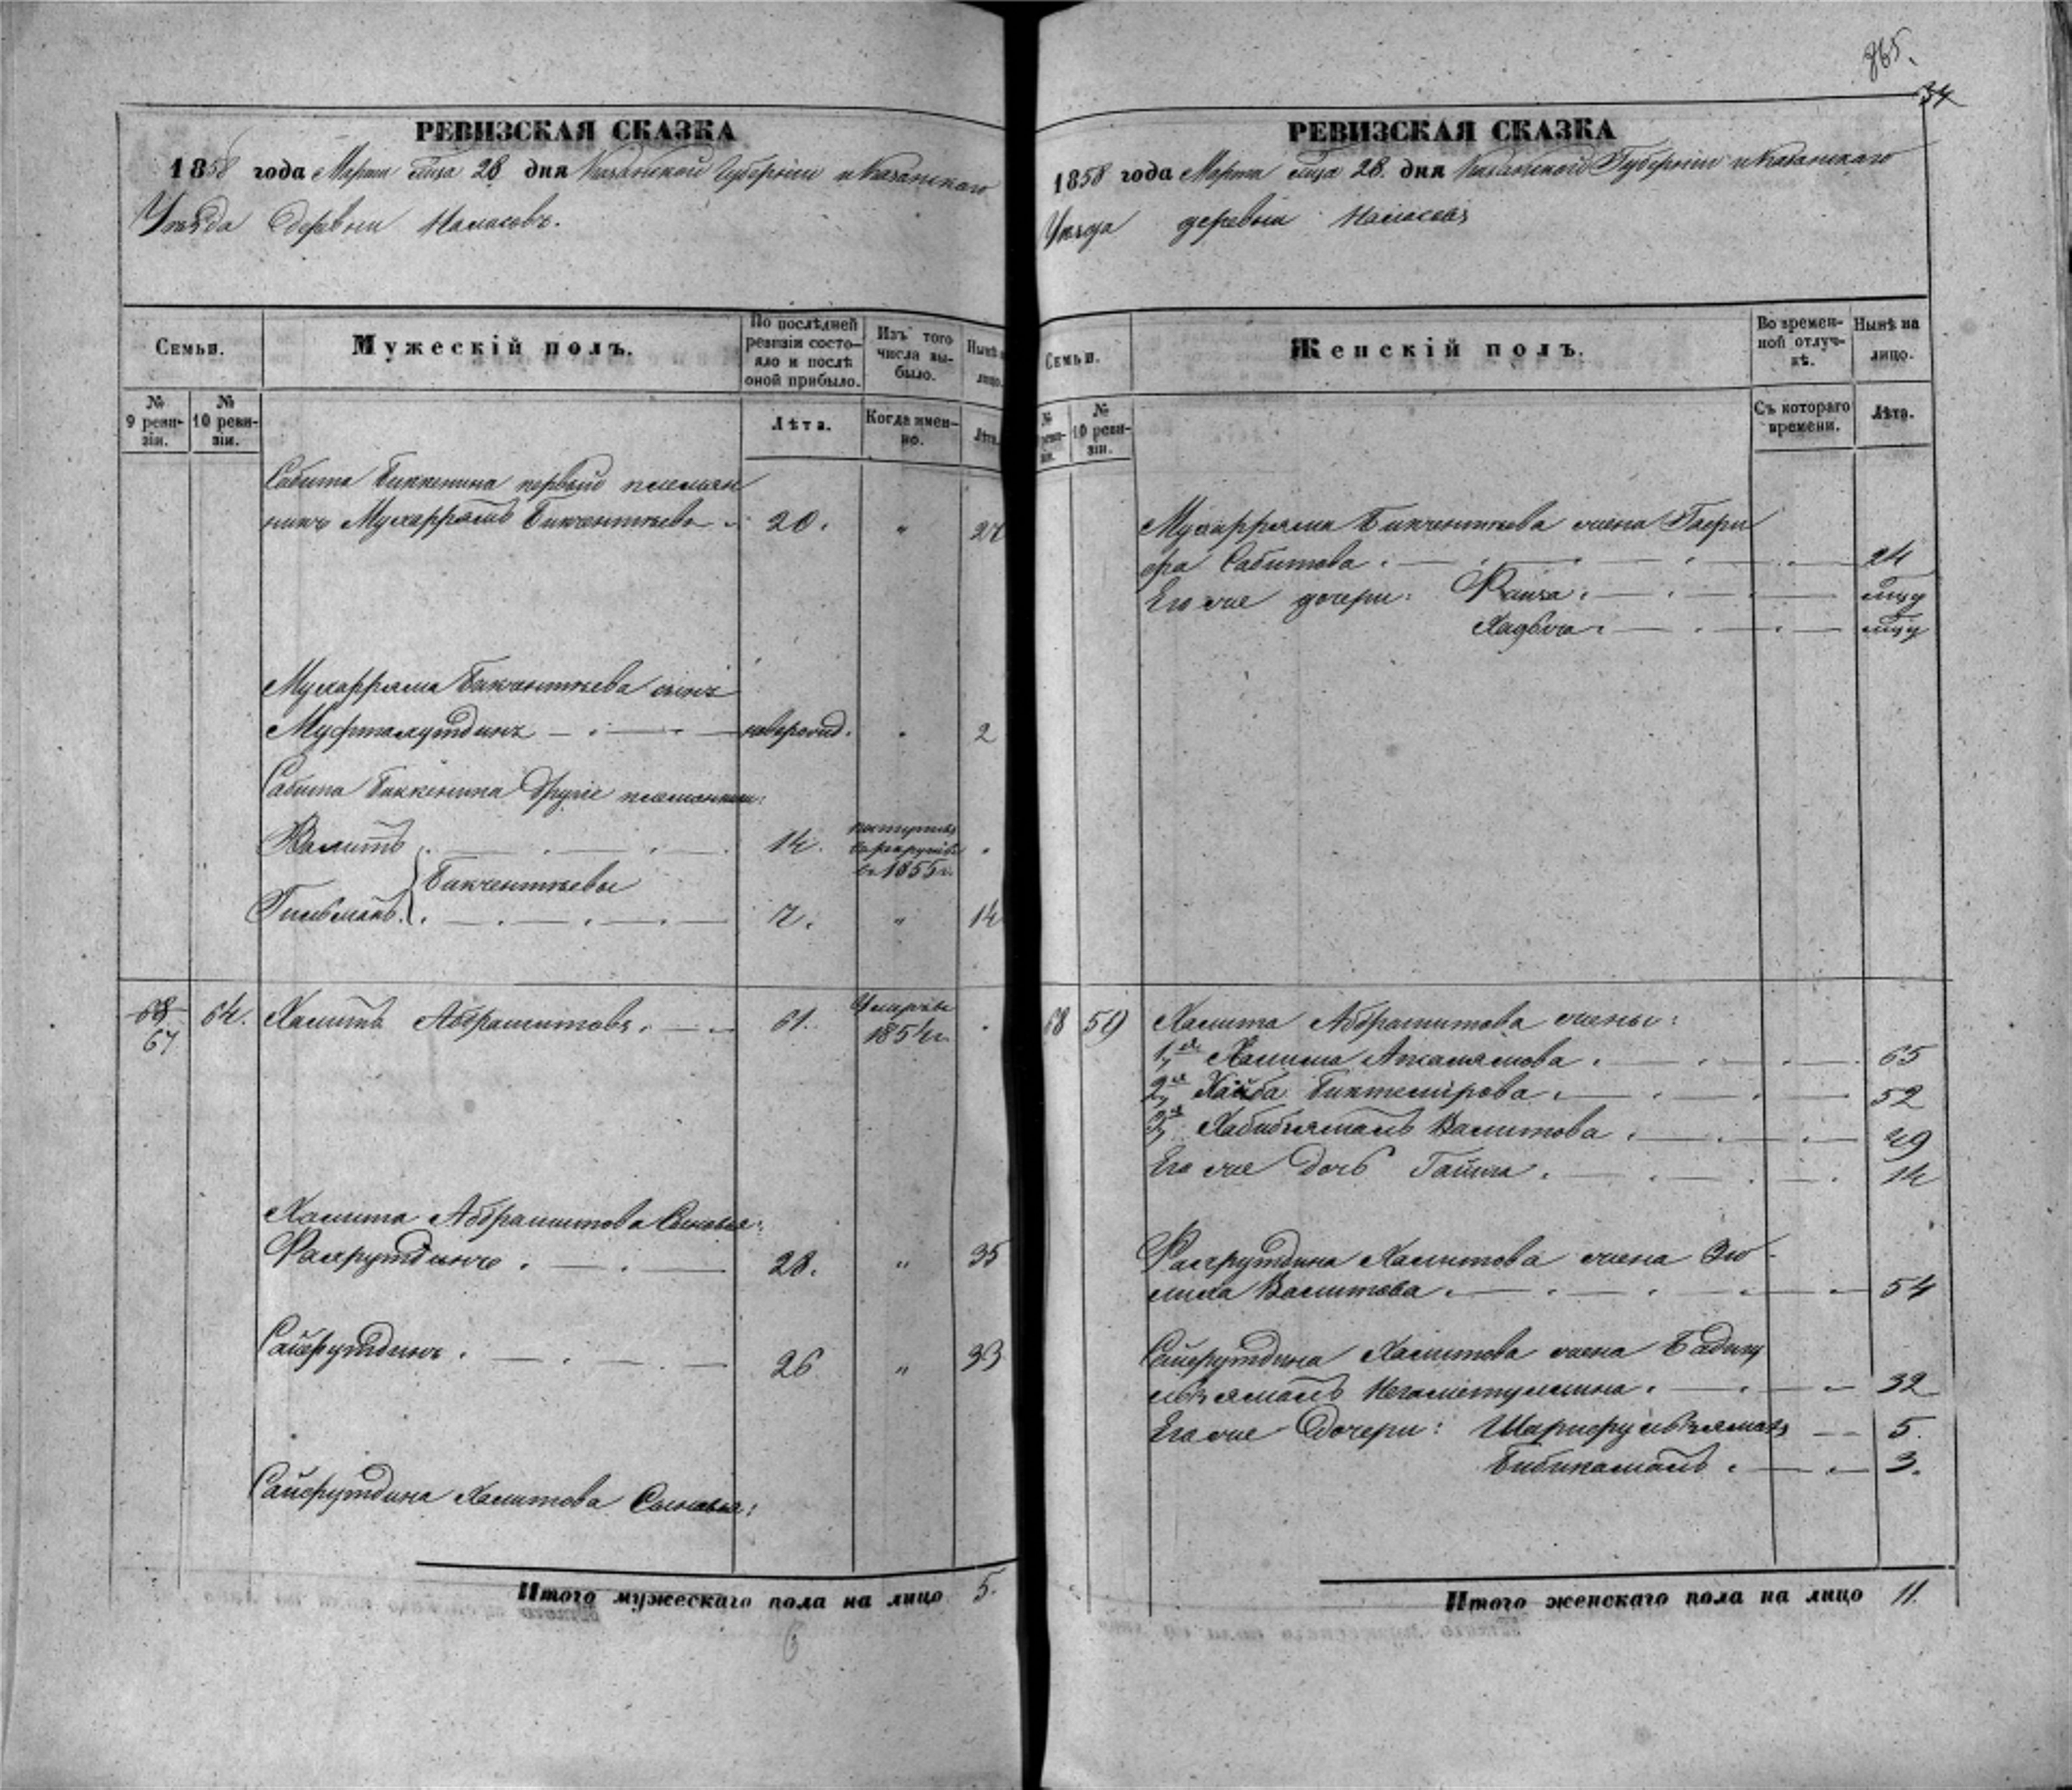 РЕВИЗСКАЯ СКАЗКА
1858 года Марта м̃ца 28 дня Казанской Губернiи и Казанскаго
Уѣзда деревни
Семьи.
Мужескiй полъ.
По послѣдней ревизiи состояло и послѣ оной прибыло.
Изъ того числа выбыло.
Нынѣ на лицо.
№ 9 ревизiи.
№ 10 ревизiи.
Лѣта.
Когда именно.
Лѣта.
Сабита Биккенина первый племян
никъ Мухаррямъ Бикчентѣевъ 20. " 27
Мухарряма Бикчентѣева сынъ
Муфтахутдинъ новорожд. 2
Сабита Биккенина другiе племянники:
Валитъ 14. поступилъ въ рекруты въ 1855 г.
Бикчентѣевы
Гильманъ 7. " 14
68 64. Хамитъ Абдрашитовъ. 61. Умеръ въ 1854 г.
67
Хамита Абдрашитова сыновья:
Фахрутдинъ. 28. " 35
Сайфутдинъ. 26 " 33
Сайфутдина Хамитова сыновья:
Итого мужескаго пола на лицо 5.
6
865.
34
РЕВИЗСКАЯ СКАЗКА
1858 года Марта м̃ца 28. дня Казанской Губернiи и Казанскаго
Уѣзда деревни
Семьи.
Женскiй полъ.
Во временной отлучкѣ.
Нынѣ на лицо.
№ 10 ревизiи.
Съ котораго времени.
Лѣта.
Мухарряма Бикчентѣева жена
Сабитова. 24
Его же дочери: Фаиза.
Хадыча.
68 59 Хамита Абдрашитова жены:
1я Халима 65
2я Биктемирова. 52
3я Хабибъямалъ Валитова. 49
Его же дочь 14
Фахрутдина Хамитова жена Зю
Валитова. 34
Сайфутдина Хамитова жена Бадигу
льзямалъ 32
Его же дочери: 5.
Бибикамалъ. 3.
Итого женскаго пола на лицо 11.